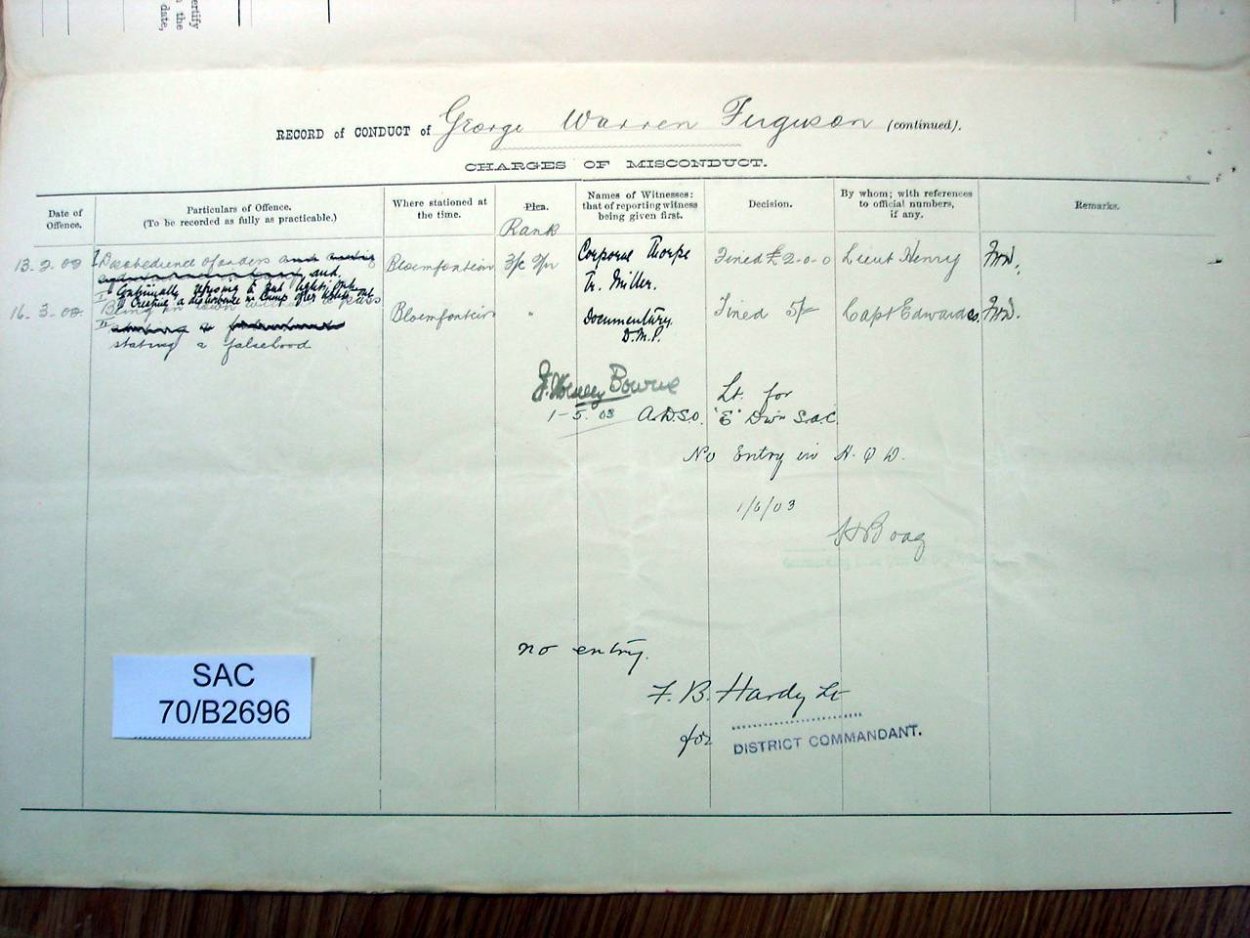 ertify
n the
date,
RECORD of CONDUCT of George Warren Ferguson (continued).
CHARGES OF MISCONDUCT.
Date of Offence.
Particulars of Offence. (To be recorded as fully as practicable.)
Where stationed at the time.
Plea.
Rank
Names of Witnesses: that of reporting witness being given first.
Decision.
By whom; with references to official numbers, if any.
Remarks.
Disobedience of orders and
Continually refusing to put lights out
Creating a disturbance in Camp after lights out
Bloemfontein
Corporal Thorpe
Tr. Miller.
Fined £2-0-0
Lieut Henry
16. 3.
Being in town without a pass
II
stating a falsehood
Bloemfontein
"
Documentary
D.M.P.
Fined 5/-
Capt Edwards.
Bourne
Lt. for
1-5. 03 A.D.S.O. "E" Divn S.A.C.
No Entry in
1/6/03
HBoag
no entry.
F. B. Hardy Lt
for DISTRICT COMMANDANT.
SAC
70/B2696